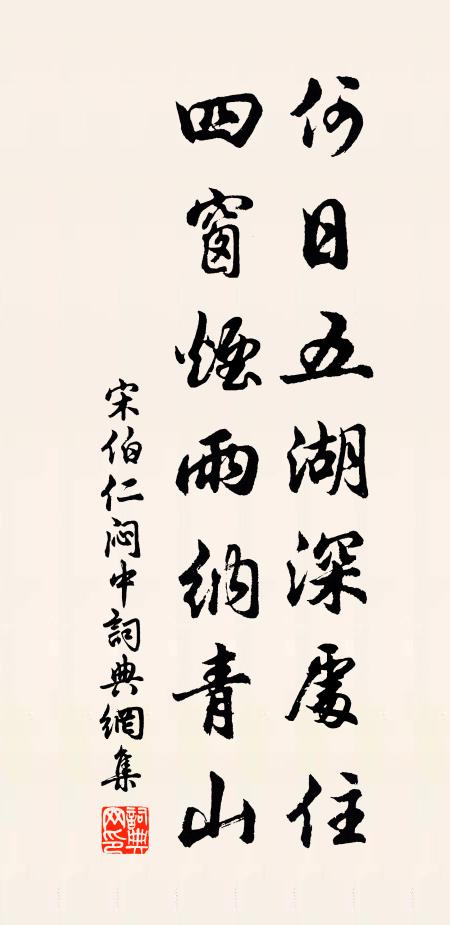 何日五湖深處住
四窗煙雨納青山
宋伯仁闷中詞典網集
詞典網印